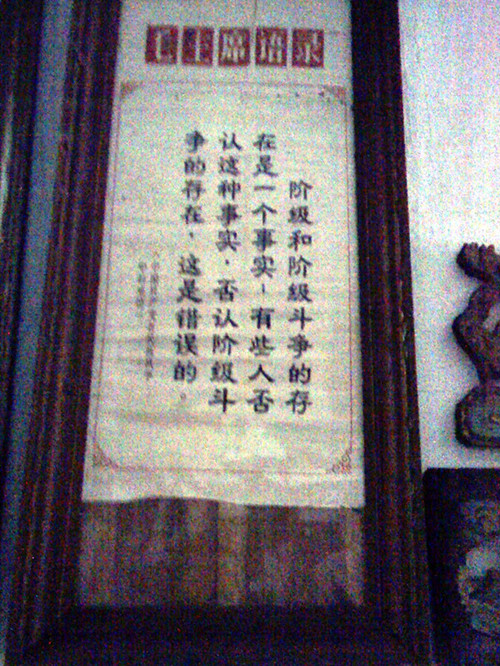 毛主席语录
阶级和阶级斗争的存
在是一个事实；有些人否
认这种事实，否认阶级斗
争的存在，这是错误的。